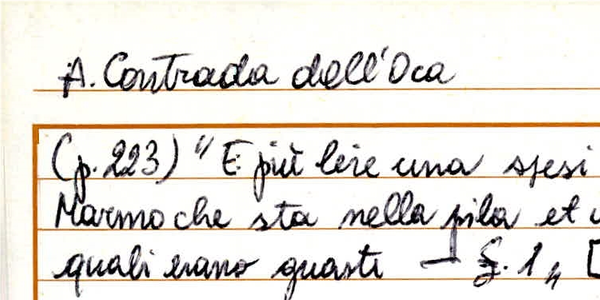 A. Contrada dell'Oca
(p.223) "E più lire una spesi
Marmo che sta nella pila et
quali erano guasti — £. 1 „ [